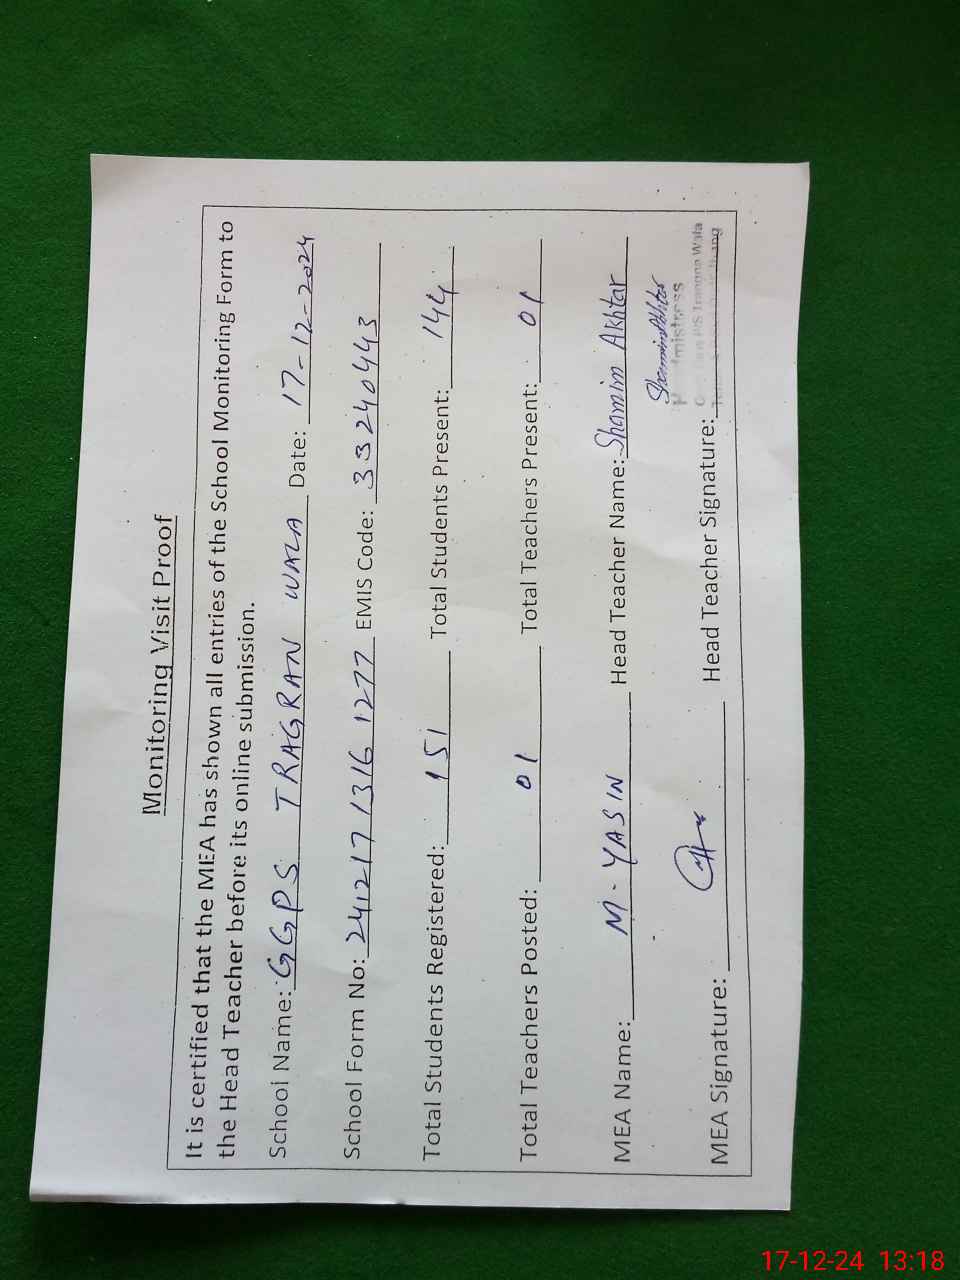 Monitoring Visit Proof
It is certified that the MEA has shown all entries of the School Monitoring Form to
the Head Teacher before its online submission.
School Name: GGPS TRAGRAN WALA Date: 17-12-2024
School Form No: 241217 1316 1277 EMIS Code: 33240443
Total Students Registered: 151 Total Students Present: 144
Total Teachers Posted: 01 Total Teachers Present: 01
MEA Name: M. YASIN Head Teacher Name: Shamim Akhtar
Shamim Akhtar
MEA Signature: Head Teacher Signature:
Wala
17-12-24 13:18